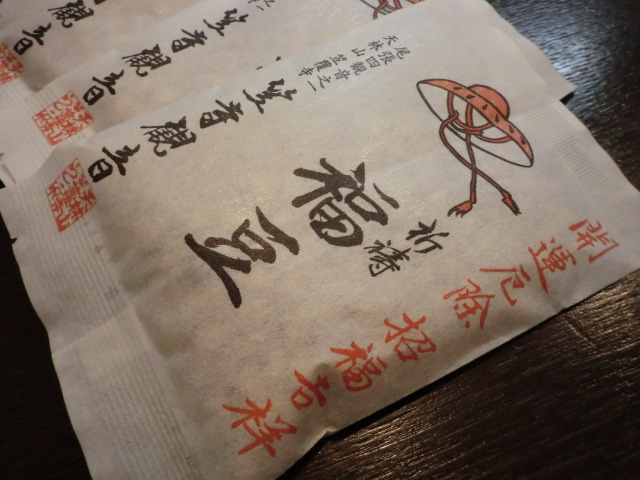 開運厄除
招福吉祥
祈祷
福豆
尾張四観音之一
天林山 笠覆寺
笠寺觀音
笠寺觀音
觀音